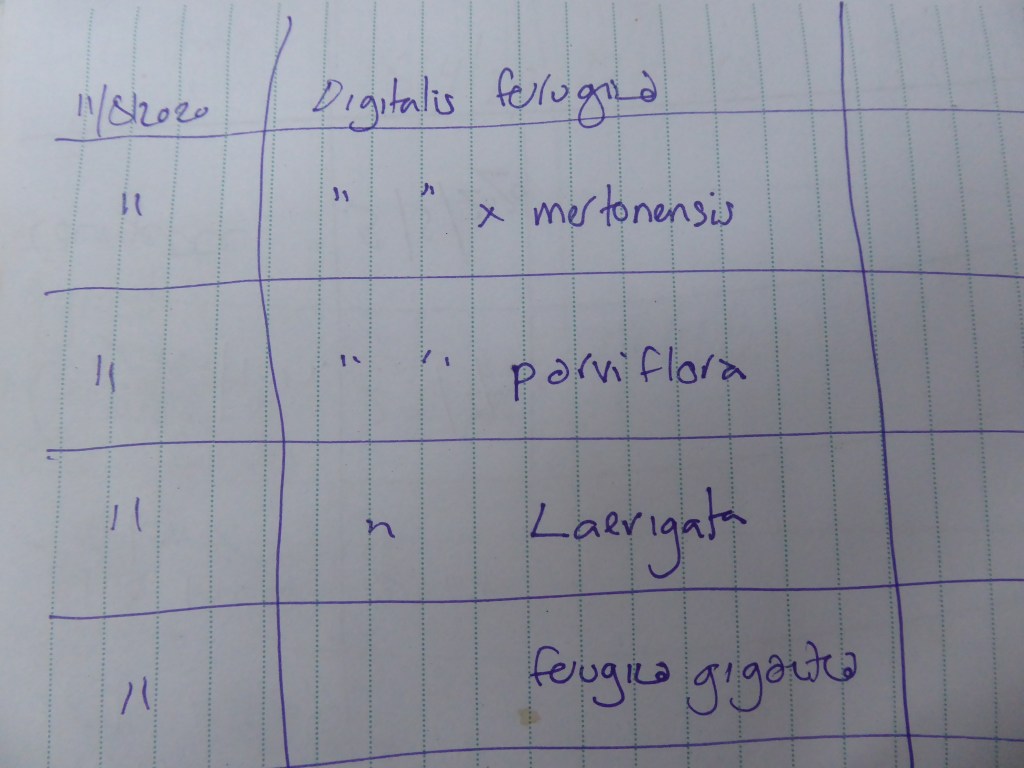 11/8/2020 Digitalis ferugina
" " " x mertonensis
" " " parviflora
" " Laevigata
" ferugina gigantea